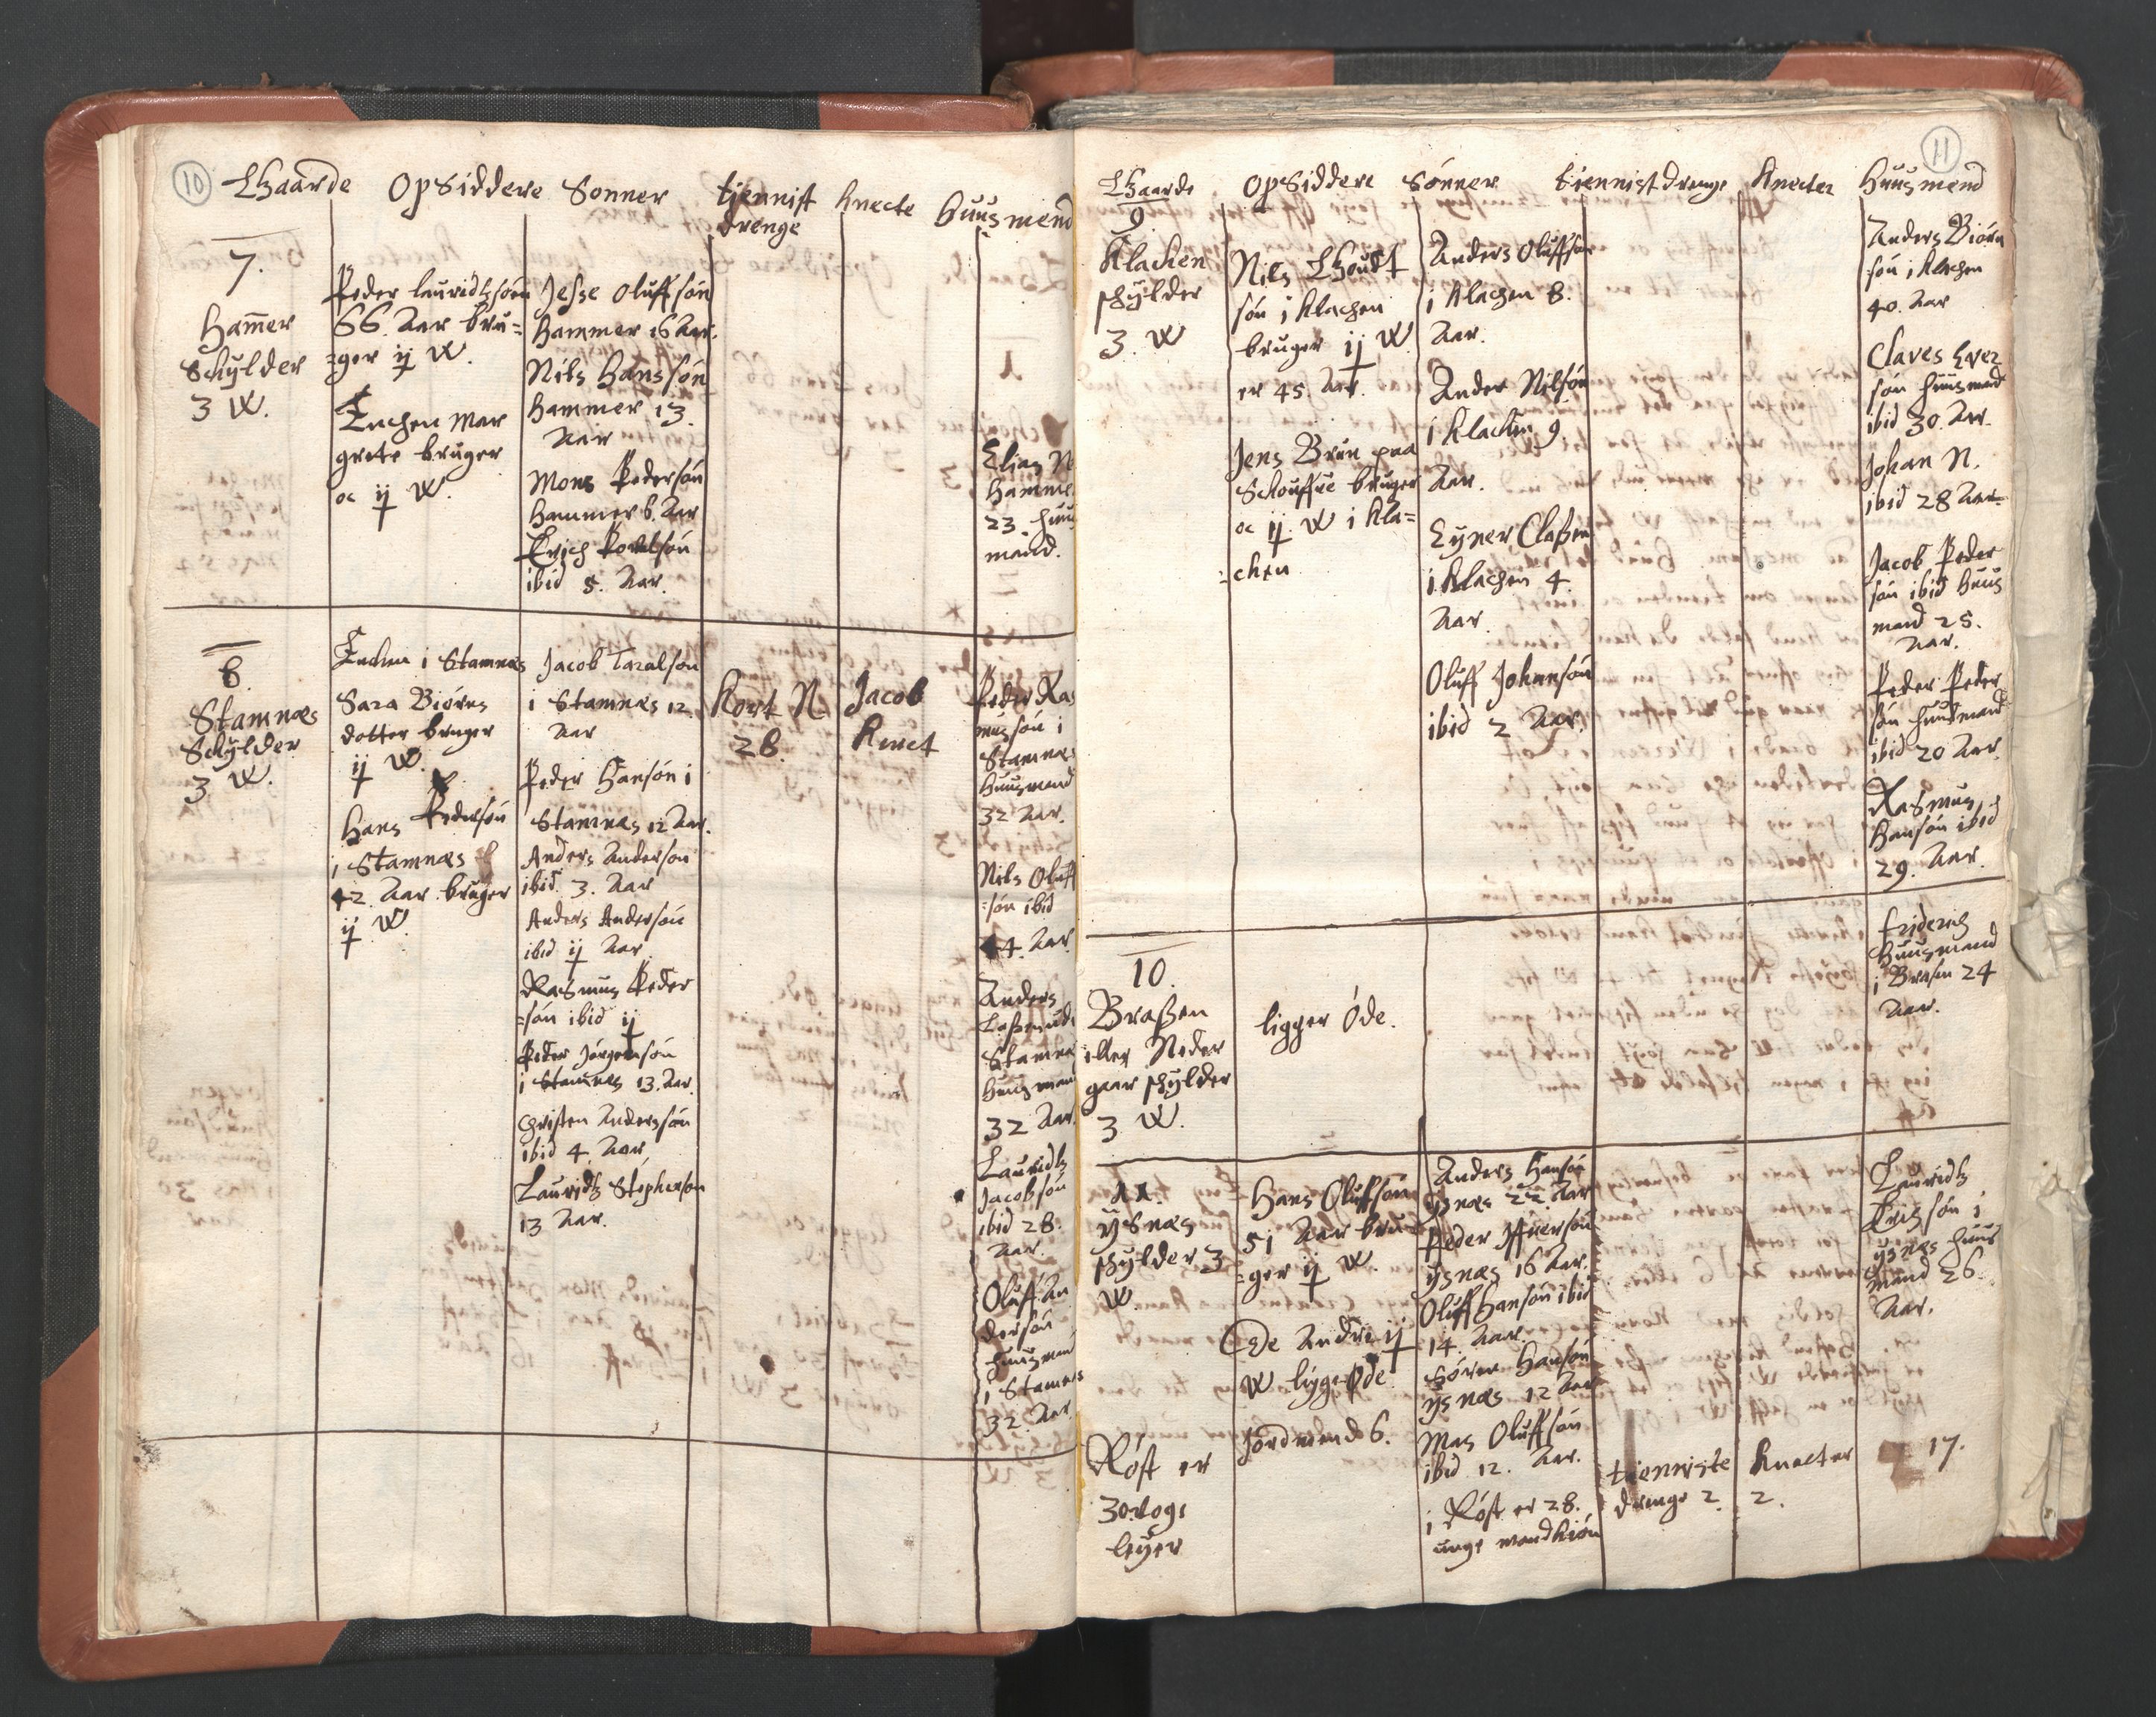 10
Gaarde
OpSiddere
Sonner
tjennist
drenge
knecte
huusmend
7.
Ham̄er
Schylder
3 W.
Peder lauridtzsøn
66. Aar bru=
=ger ij W.
Enchen Mar
grete bruger
oc ij W.
Jesse Oluffsøn
Hammer 16 Aar.
Nils Hanssøn
Hammer 13
Aar
Mons Pedersøn
Hammer 8. Aar
Erich Povelsøn
ibid 5. Aar.
Elias N
Hamme
23. huus
mand.
8
Stamnæs
Schylder
3 W.
Enchen i Stamnæs
Sara Biørns
dotter bruger
ij W.
Hans Pedersøn
i Stamnæs
42. Aar bruger
ij W.
Jacob Taralson
i Stamnæs 12
Aar
Peder Hansøn i
Stamnæs 12 Aar.
Anders Anderson
ibid. 3. Aar
Anders Andersøn
ibid ij Aar
Rasmus Peder
=søn ibid ij
Peder Jørgensøn
i Stamnes 13. Aar.
Christen Anderssøn
ibid 4. Aar,
Lauridtz Stephensøn
13 Aar.
Kort N.
28.
Jacob
Knect
Peder Ras
mussøn i
Stamnæs
Huusmand
32 Aar.
Nils Oluff
=søn ibid
44. Aar.
Anders
Stamnæ
Huusmand
32 Aar.
Lauridtz
Jacobsøn
ibid 28.
Aar.
Oluff An
dersøn
huusman
i Stamnes
32. Aar
11
Gaarde
OpSiddere
Sønner
tiennist drenge
Knecter
Huusmend
9.
Klacken
schylder
3. W
Nils
søn i Klachen
bruger ij W.
er 45. Aar.
Jens Brun paa
Schouffue bruger
oc ij W i Kla=
=chen
Anders Oluffsøn
i Klachen 8.
Aar.
Ander Nilsøn
i Klachen 9
Aar.
Eyner Claßen
i Klachen 4.
Aar.
Oluff Johansøn
ibid 2 Aar.
Anders Biørn
søn i Klachen
40. Aar
Claves Iver
søn huusmand
ibid 30. Aar.
Johan N.
ibid 28 Aar
Jacob Peder
søn ibid Huus
mand 25.
Aar.
Peder Peder
søn huusmand
ibid 20 Aar.
Rasmus
Hansøn ibid
29. Aar.
10.
Braßen
eller Neder
gaar schylder
3 W.
ligger Øde.
friderich
Huusmand
i Brasen 24
Aar.
11.
ÿsnæs
schylder 3
W
Hans Oluffsøn
51 Aar bru=
=ger ij W.
De Andre ij
W ligge øde
Anders Hansøn
ÿsnæs 22 Aar
Peder Iffuersøn
ÿsnæs 16 Aar.
Oluff Hansøn ibid
14. Aar.
Søren Hansøn
ÿsnæs 12 Aar
Mas Oluffsøn
ibid 12. Aar.
Lauridtz
Erichsøn i
ÿsnæs huus
mand 26.
Aar.
Røst er
30 voge
leÿer
Jordmend 6.
i Røst er 28.
unge mandkiøn
tienniste
drenge 2.
Knecter
2.
17.